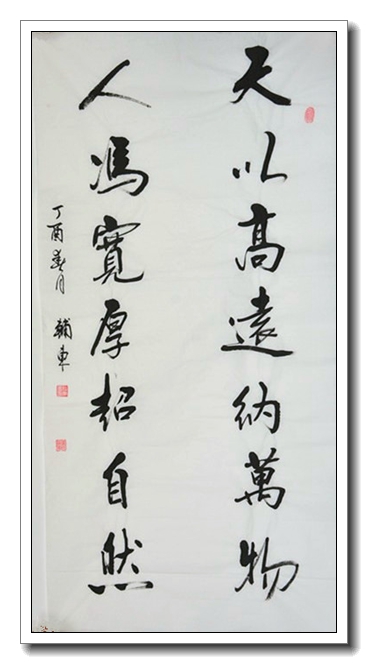 天以高遠納萬物
人馮寬厚超自然
丁酉春月 輔東